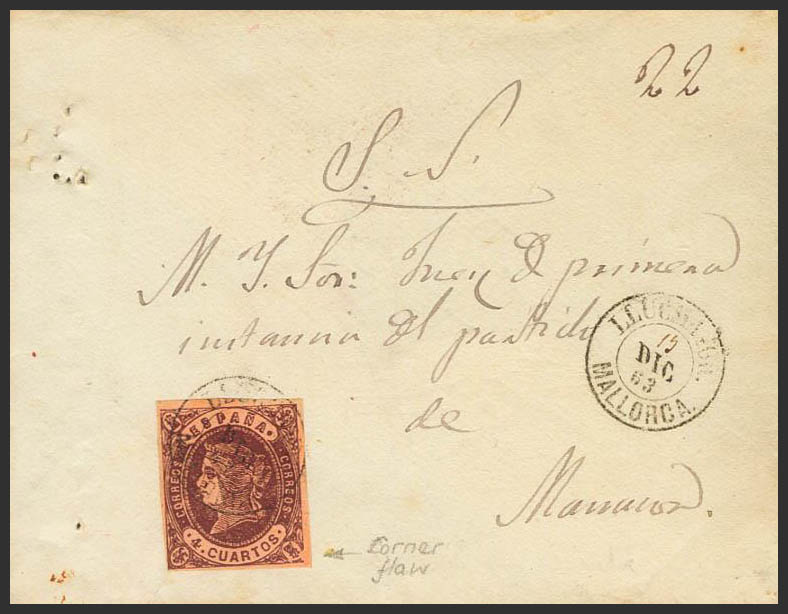 22
S. N.
M. Y. Sor: Juez de primera
instancia del partido
de
Manacor.
LLUCHMAYOR.
15
DIC
63
MALLORCA.
ESPAÑA
CORREOS
CORREOS
4. CUARTOS.
corner
flaw